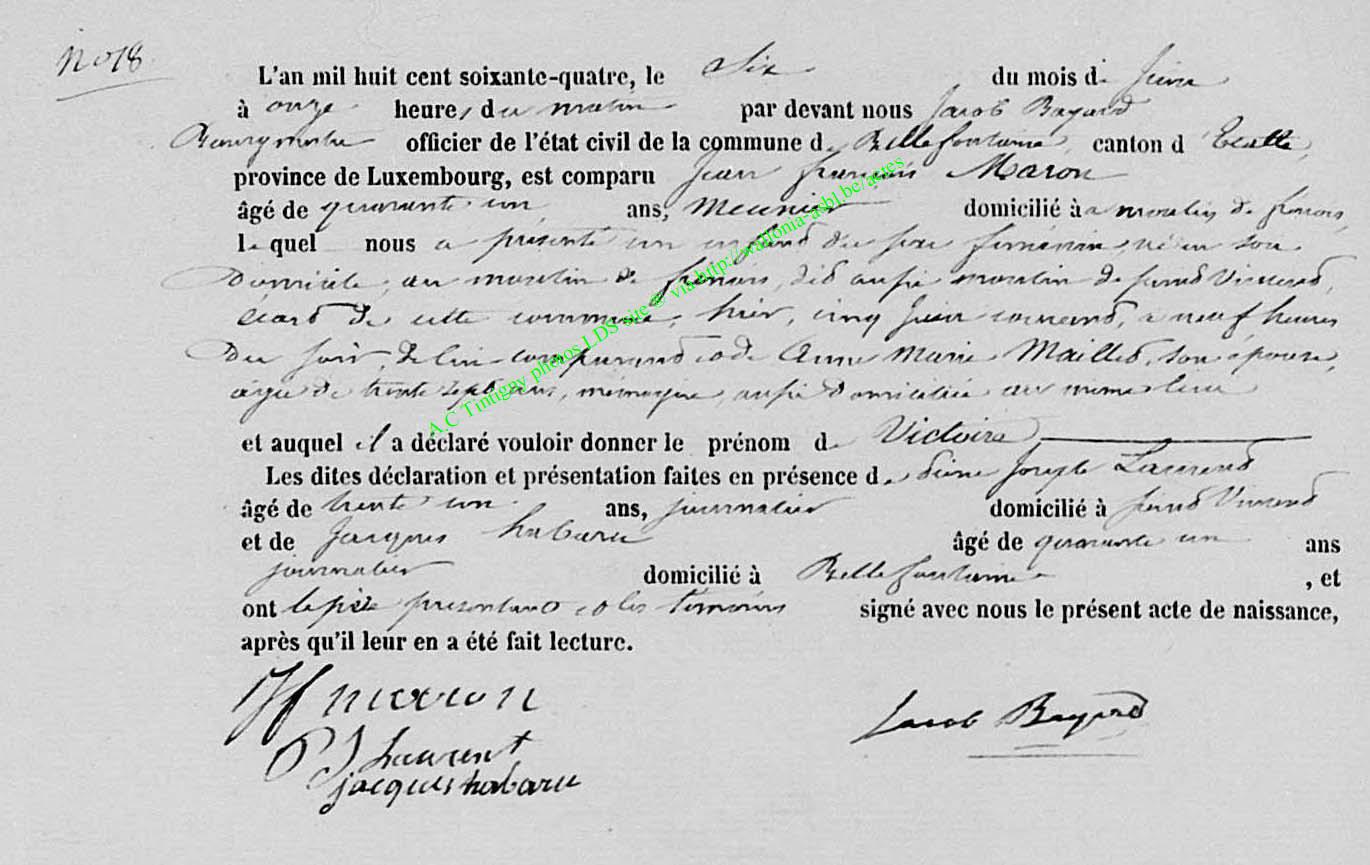 No 18
L'an mil huit cent soixante-quatre, le six du mois de juin
à onze heures du matin par devant nous Jacob Bayard
Bourgmestre officier de l'état civil de la commune de Bellefontaine, canton d'Etalle,
province de Luxembourg, est comparu Jean françois Maron
âgé de quarante un ans, meunier domicilié à moulin de
lequel nous a présenté un enfant du sexe féminin, né en son
Domicile, au moulin de dit aussi moulin de
écart de cette commune, hier, cinq juin courant, à neuf heures
Du soir, de lui comparant et de Anne Marie Maillet, son épouse,
agée de trente sept ans, ménagère, aussi domiciliée au même lieu
et auquel il a déclaré vouloir donner le prénom de Victoire
Les dites déclaration et présentation faites en présence de Pierre Joseph Laurent
âgé de trente un ans, journalier domicilié à
et de Jacques habaru âgé de quarante un ans
journalier domicilié à Bellefontaine, et
ont le père présentant et les témoins signé avec nous le présent acte de naissance,
après qu'il leur en a été fait lecture.
JF maron
Jacob Bayard
P J Laurent
jacques habaru
A.C Tintigny photos LDS site © via http://wallonia-asbl.be/actes